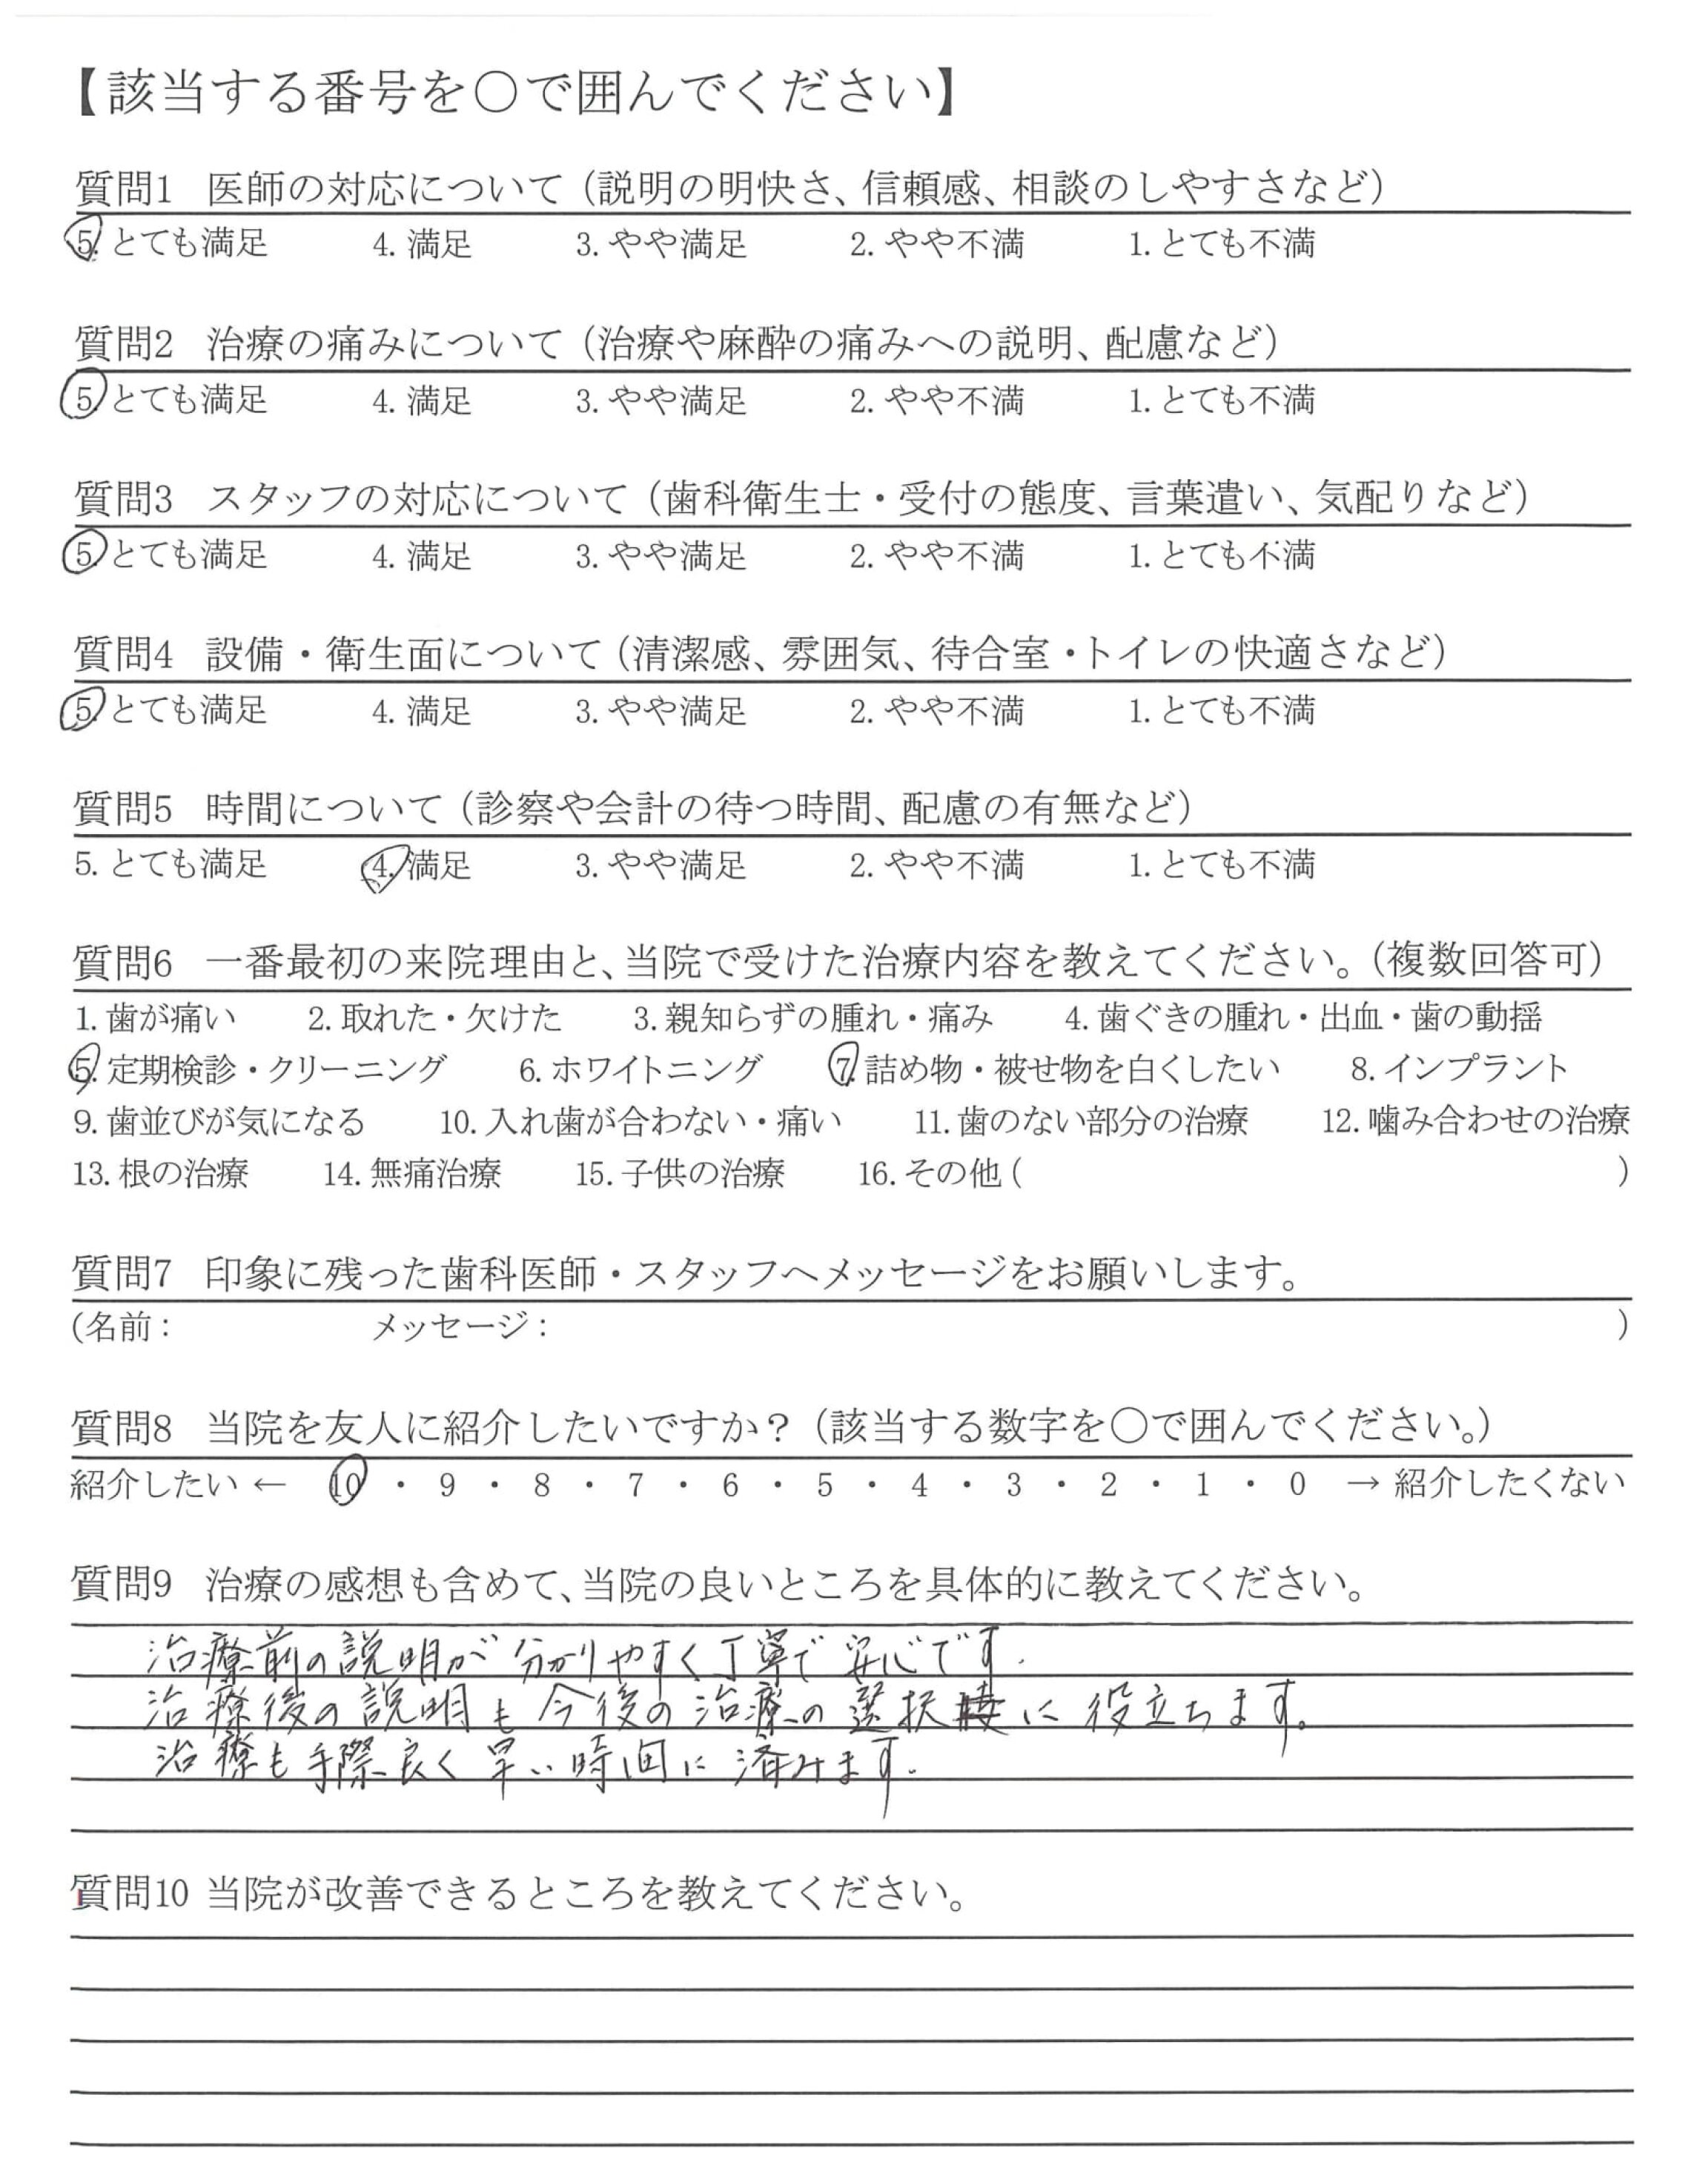 【該当する番号を○で囲んでください】
質問1 医師の対応について（説明の明快さ、信頼感、相談のしやすさなど）
5. とても満足 4. 満足 3. やや満足 2. やや不満 1. とても不満
質問2 治療の痛みについて（治療や麻酔の痛みへの説明、配慮など）
5. とても満足 4. 満足 3. やや満足 2. やや不満 1. とても不満
質問3 スタッフの対応について（歯科衛生士・受付の態度、言葉遣い、気配りなど）
5. とても満足 4. 満足 3. やや満足 2. やや不満 1. とても不満
質問4 設備・衛生面について（清潔感、雰囲気、待合室・トイレの快適さなど）
5. とても満足 4. 満足 3. やや満足 2. やや不満 1. とても不満
質問5 時間について（診察や会計の待つ時間、配慮の有無など）
5. とても満足 4. 満足 3. やや満足 2. やや不満 1. とても不満
質問6 一番最初の来院理由と、当院で受けた治療内容を教えてください。（複数回答可）
1. 歯が痛い 2. 取れた・欠けた 3. 親知らずの腫れ・痛み 4. 歯ぐきの腫れ・出血・歯の動揺
5. 定期検診・クリーニング 6. ホワイトニング 7. 詰め物・被せ物を白くしたい 8. インプラント
9. 歯並びが気になる 10. 入れ歯が合わない・痛い 11. 歯のない部分の治療 12. 噛み合わせの治療
13. 根の治療 14. 無痛治療 15. 子供の治療 16. その他（ ）
質問7 印象に残った歯科医師・スタッフへメッセージをお願いします。
（名前： メッセージ： ）
質問8 当院を友人に紹介したいですか？（該当する数字を○で囲んでください。）
紹介したい ← 10 ・ 9 ・ 8 ・ 7 ・ 6 ・ 5 ・ 4 ・ 3 ・ 2 ・ 1 ・ 0 → 紹介したくない
質問9 治療の感想も含めて、当院の良いところを具体的に教えてください。
治療前の説明が分かりやすく丁寧で安心です.
治療後の説明も今後の治療の選択に役立ちます。
治療も手際良く早い時間に済みます.
質問10 当院が改善できるところを教えてください。